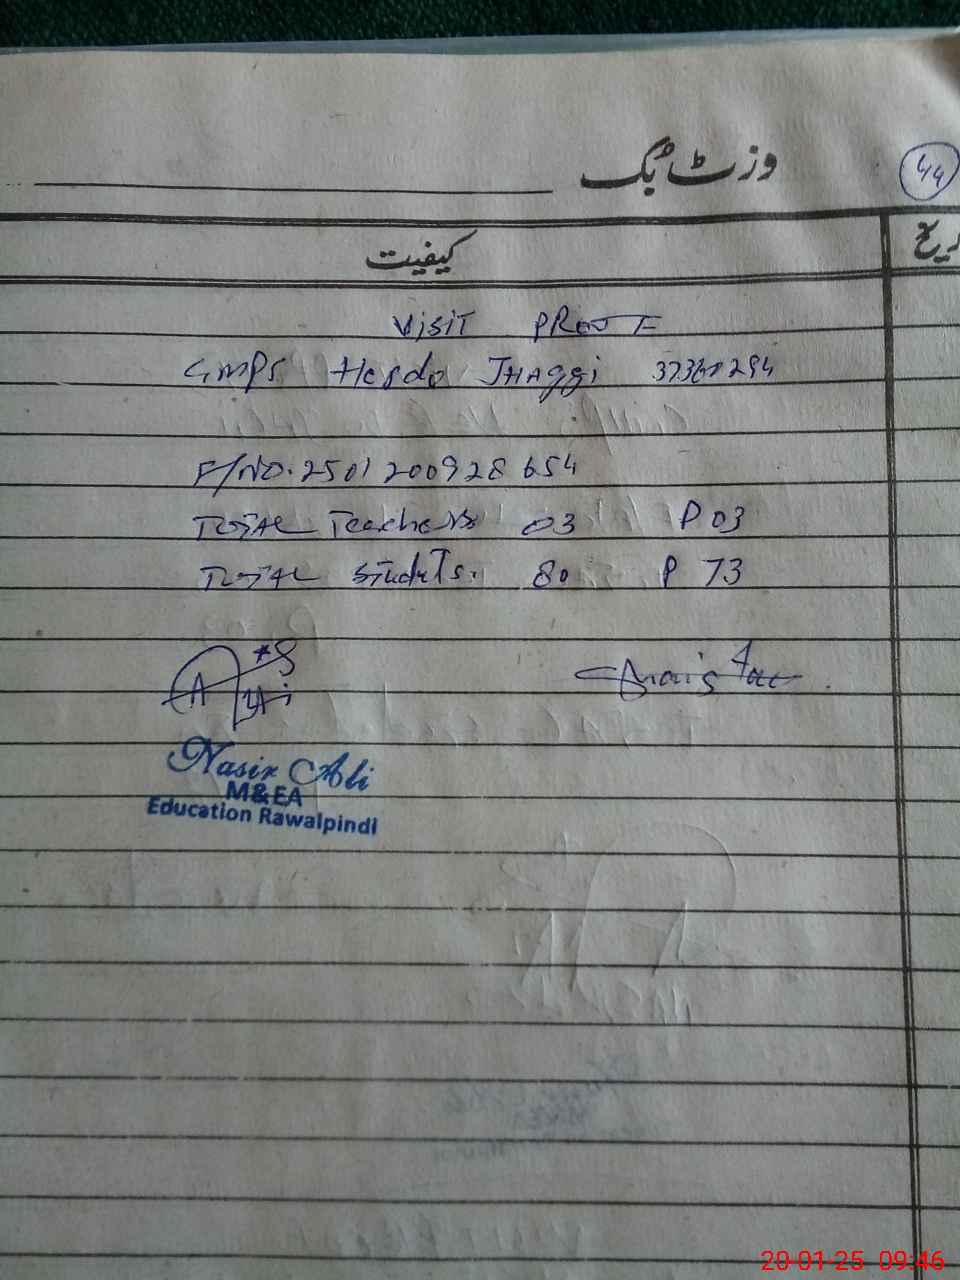 وزٹ بک
44
کیفیت
VISIT PROOF
GMPS Hesdo JHAggi 37360294
F/NO. 2501200928654
TOTAL Teachers 03 P 03
TOTAL Students. 80 P 73
Nasir Ali
M&EA
Education Rawalpindi
20-01-25 09:46